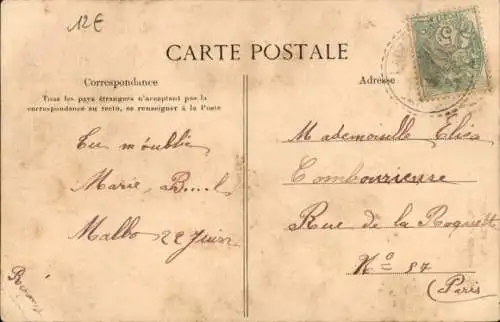 12€
CARTE POSTALE
Correspondance
Tous les pays étrangers n'acceptent pas la
correspondance au recto, se renseigner à la Poste
Adresse
Tu m'oublie
Marie B....l
Malbo 22 Juin
Mademoiselle Elisa
Combourieuse
Rue de la Roquette
No 57
(Paris